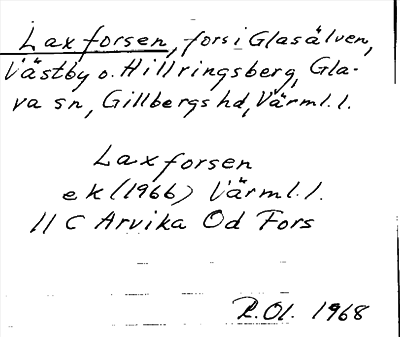 Laxforsen, fors i Glasälven,
Västby o. Hillringsberg, Gla-
va sn, Gillbergs hd, Värml. l.
Laxforsen
ek (1966) Värml. l.
11 C Arvika Od Fors
R.Ol. 1968